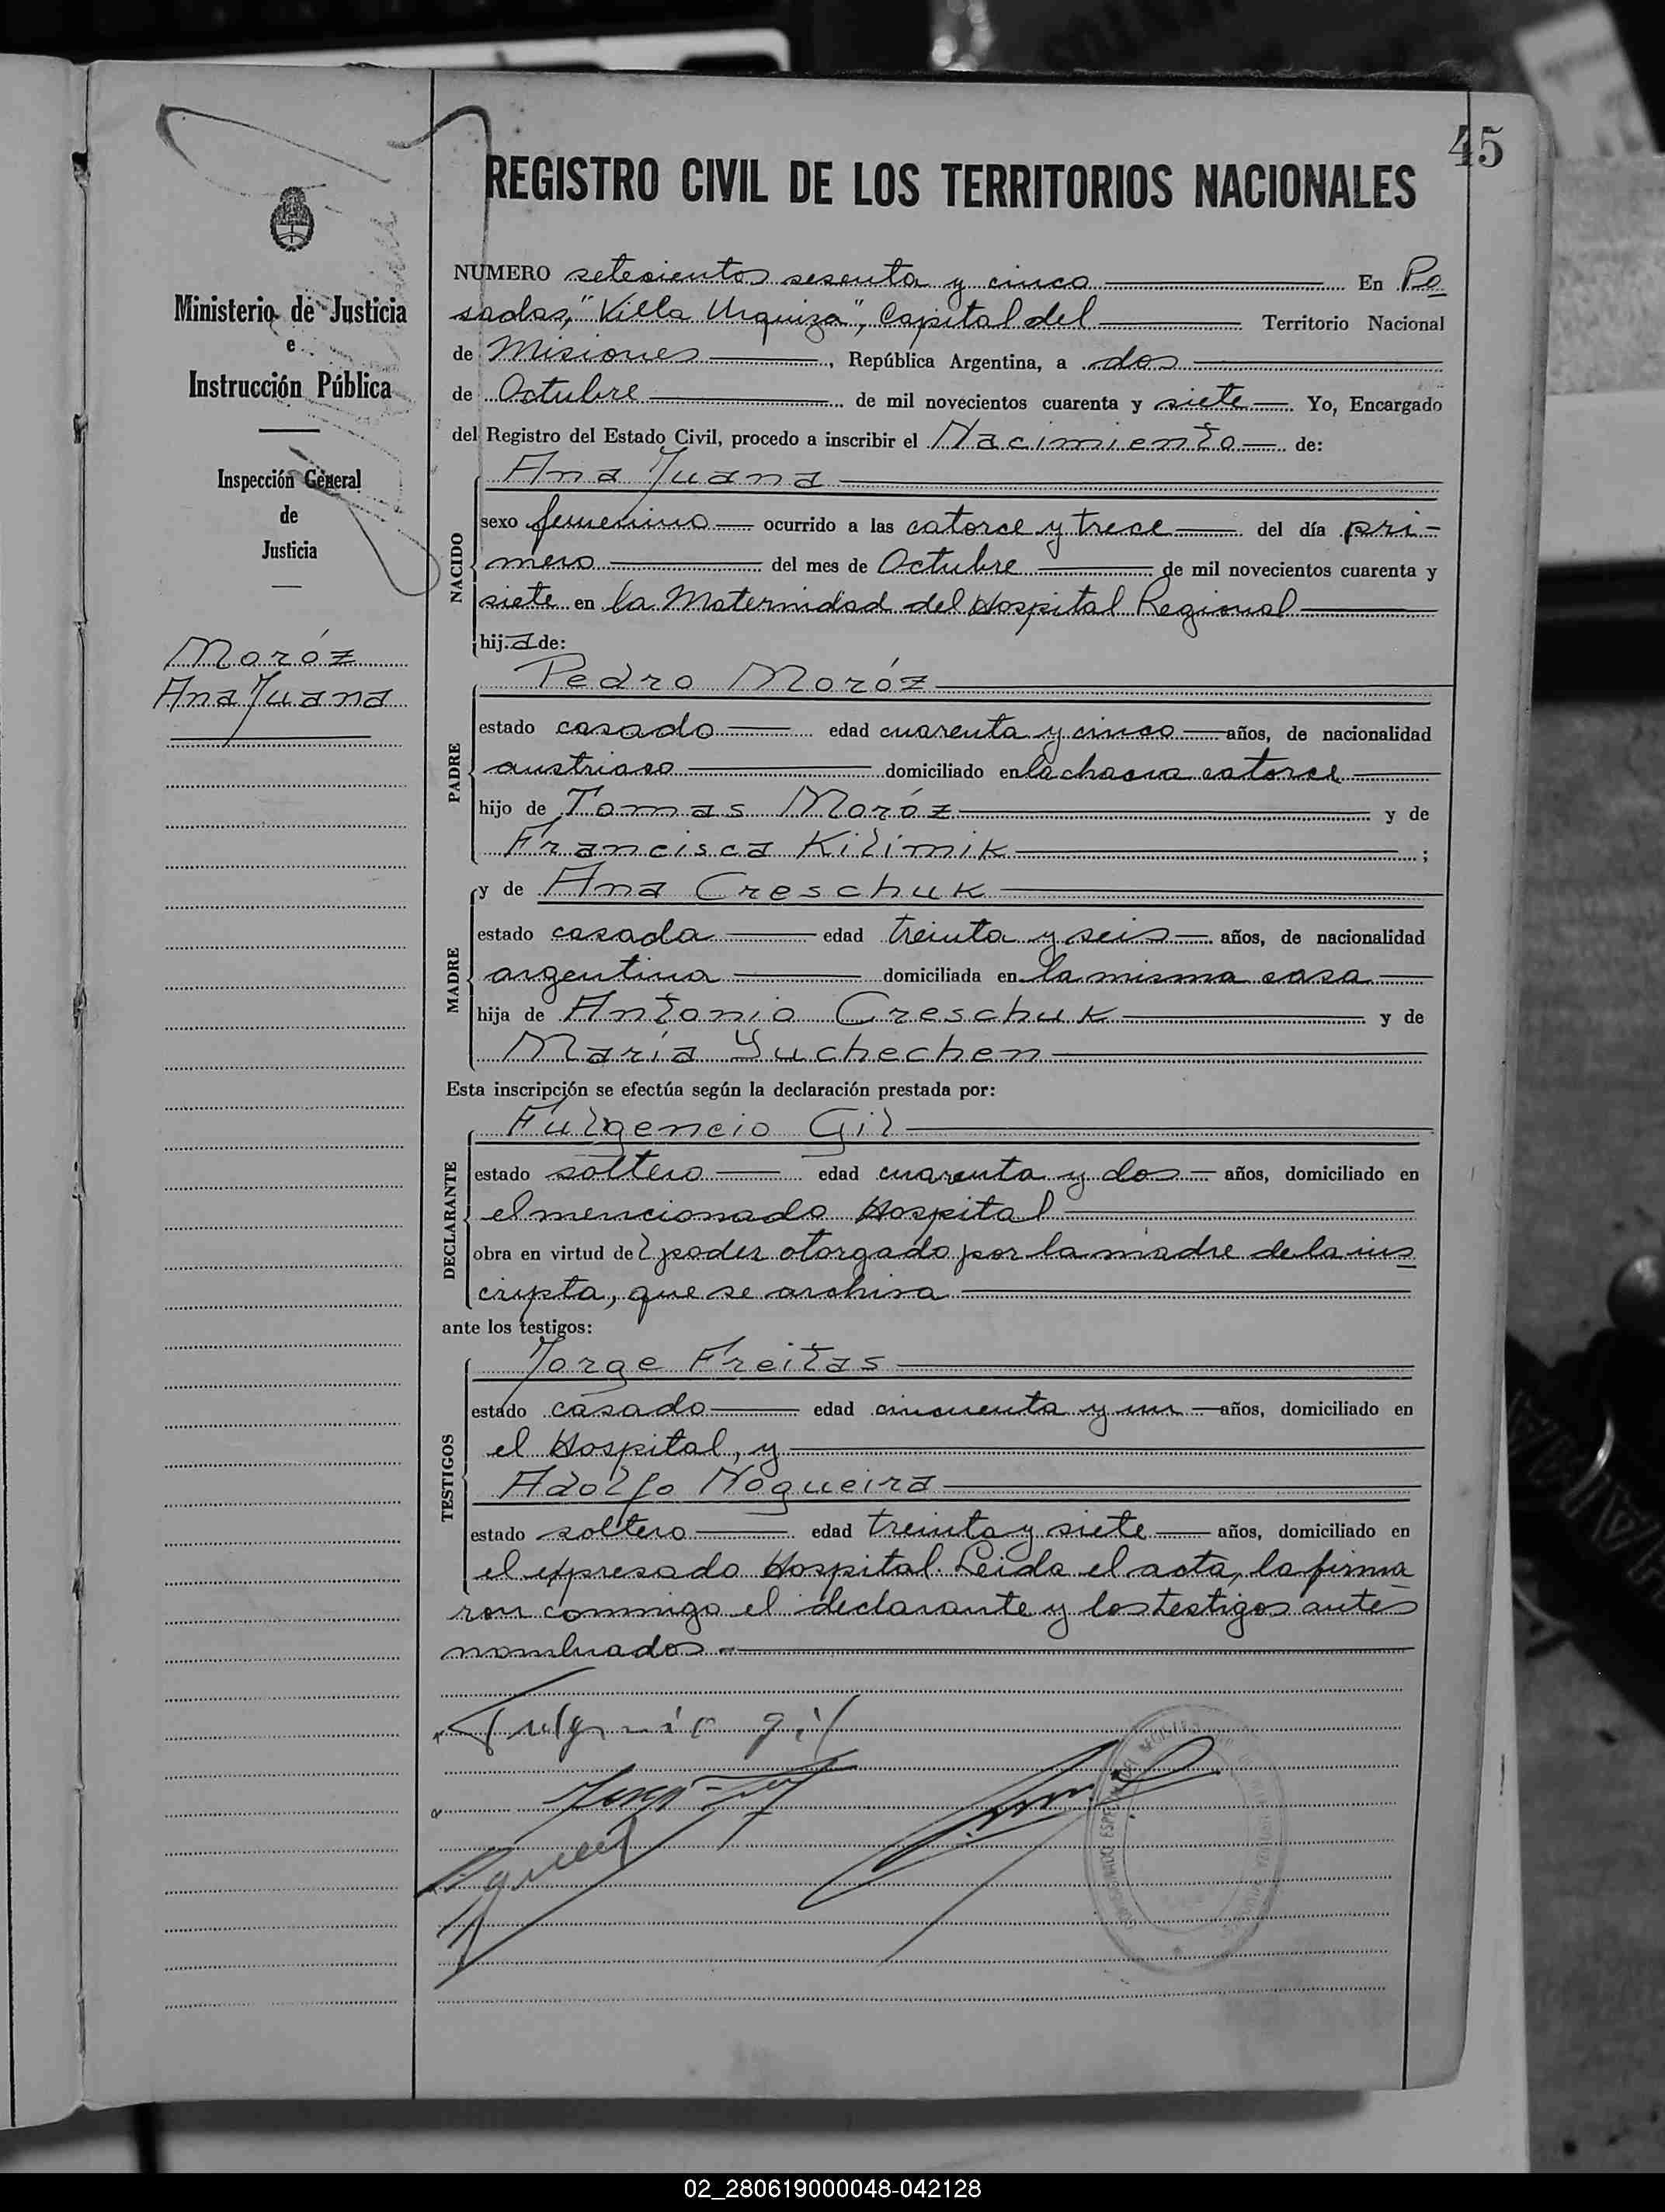 45
REGISTRO CIVIL DE LOS TERRITORIOS NACIONALES
Ministerio de Justicia
e
Instrucción Pública
Inspección General
de
Justicia
Moróz
Ana Juana
NUMERO setecientos sesenta y cinco En Po
sadas, "Villa Urquiza", Capital del Territorio Nacional
de Misiones, República Argentina, a dos
de Octubre de mil novecientos cuarenta y siete Yo, Encargado
del Registro del Estado Civil, procedo a inscribir el Nacimiento de:
NACIDO
Ana Juana
sexo femenino ocurrido a las catorce y trece del día pri-
mero del mes de Octubre de mil novecientos cuarenta y
siete en la Maternidad del Hospital Regional
hija de:
PADRE
Pedro Moróz
estado casado edad cuarenta y cinco años, de nacionalidad
austriaco domiciliado en la chacra catorce
hijo de Tomas Moróz y de
Francisca Kilimik;
MADRE
y de Ana Creschuk
estado casada edad treinta y seis años, de nacionalidad
argentina domiciliada en la misma casa
hija de Antonio Creschuk y de
María Yuchechen
Esta inscripción se efectúa según la declaración prestada por:
DECLARANTE
Fulgencio Gil
estado soltero edad cuarenta y dos años, domiciliado en
el mencionado Hospital
obra en virtud del poder otorgado por la madre de la ins
cripta, que se archiva
ante los testigos:
TESTIGOS
Jorge Freitas
estado casado edad cincuenta y un años, domiciliado en
el Hospital, y
Adolfo Nogueira
estado soltero edad treinta y siete años, domiciliado en
el expresado Hospital. Leida el acta, la firma
ron conmigo el declarante y los testigos antes
nombrados.-
Fulgencio gil
02_280619000048-042128